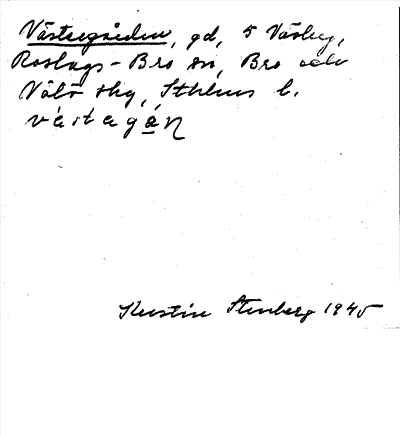 Västergården, gd, 5 Väsby,
Roslags-Bro sn, Bro och
Väddö skg, Sthlms l.
västagán
Kerstin Stenberg 1945